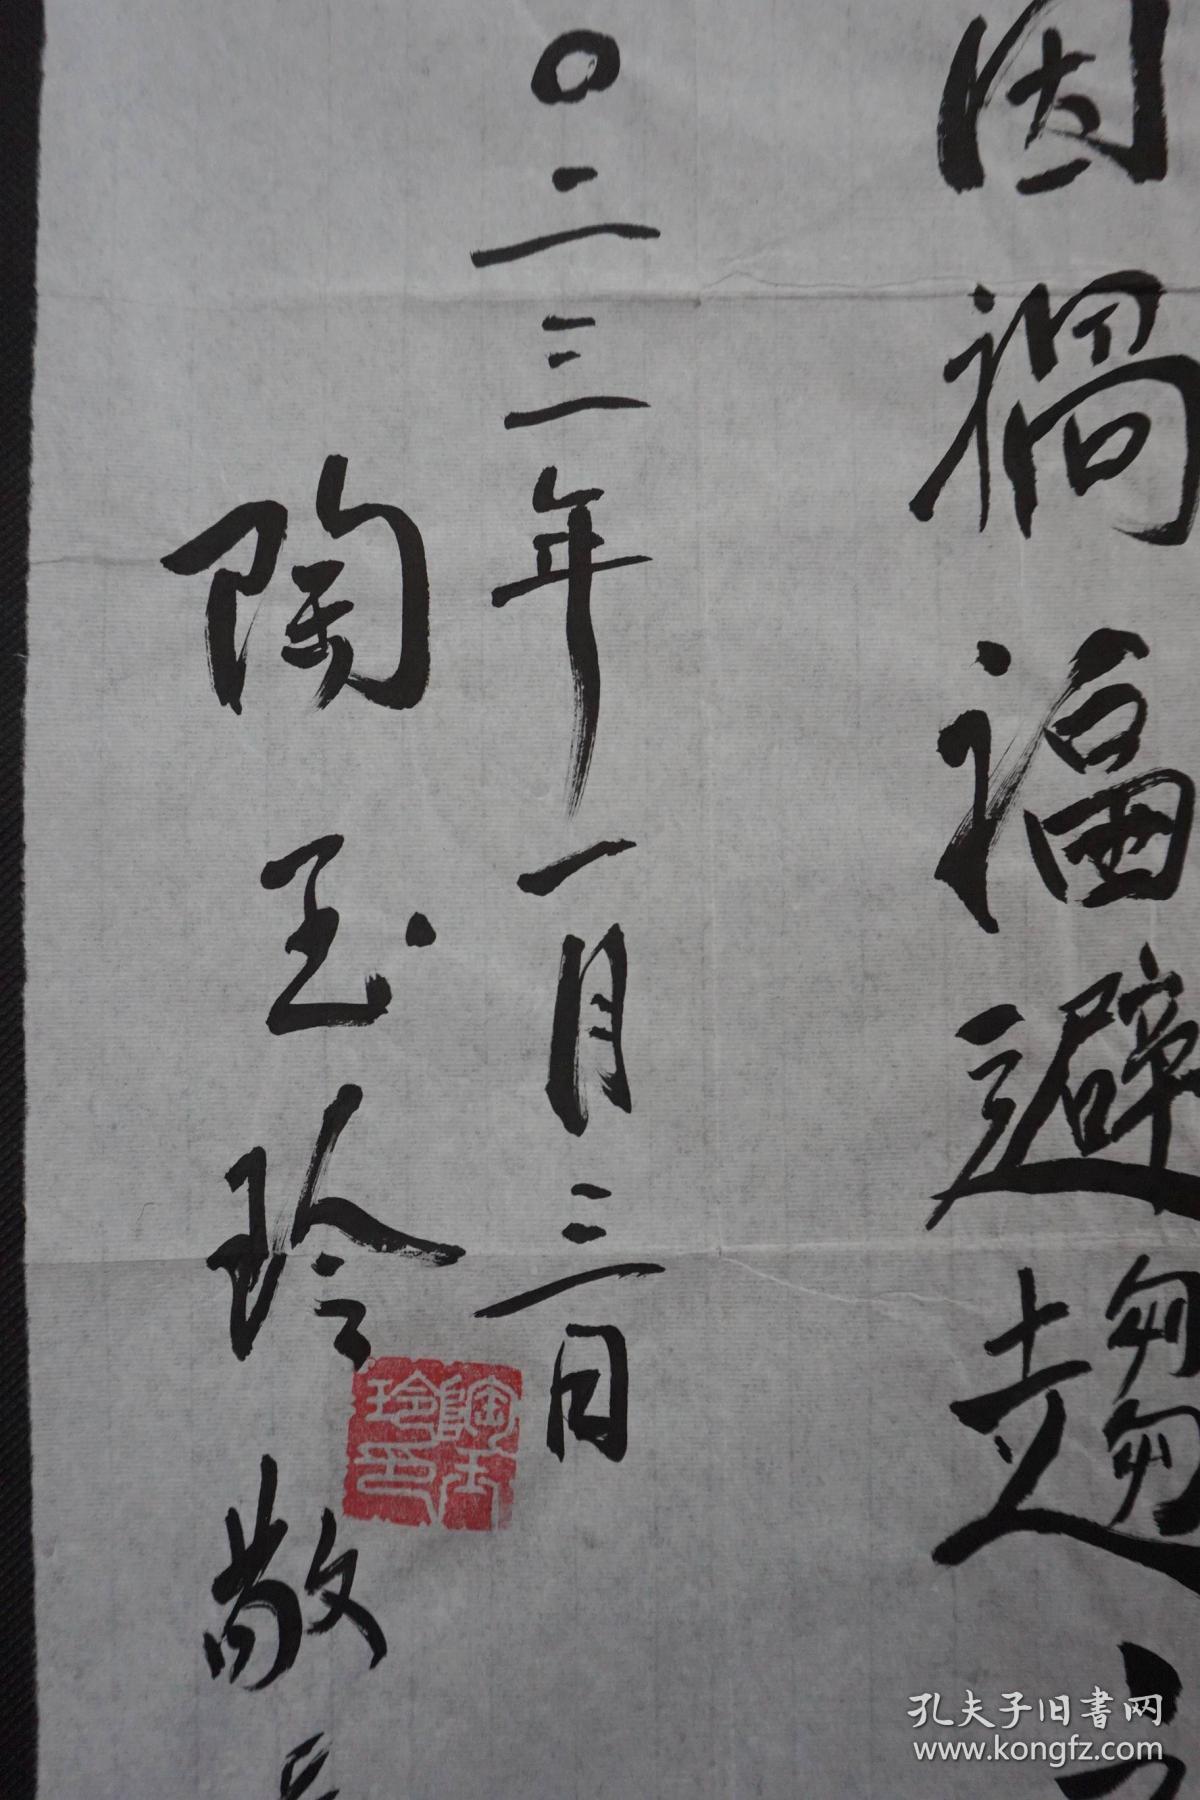 因禍福避趨之
〇二三年一月三日
陶玉玲敬
陶玉玲印
孔夫子旧書网
www.kongfz.com